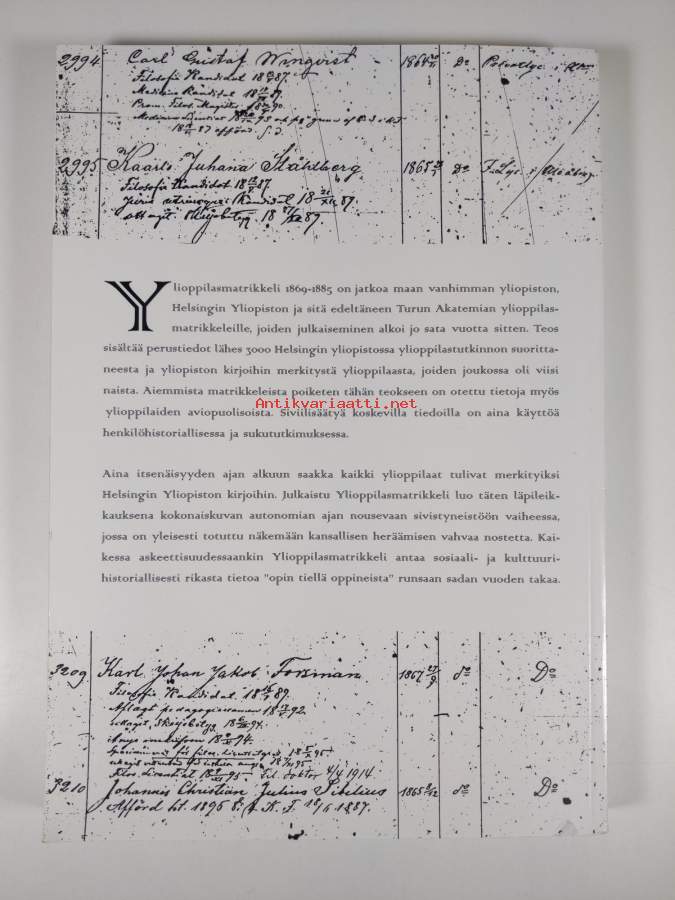 2994 Carl Gustaf Winqvist 1866 Do
Filosofie Kandidat 18 87.
Medicine Kandidat 18 89.
Prom. Filos. Magister 18 90.
2995 Kaarlo Juhana Ståhlberg 1865 Do
Filosofie Kandidat 18 87.
Juris utriusque Kandidat 18 87.
Ylioppilasmatrikkeli 1869-1885 on jatkoa maan vanhimman yliopiston,
Helsingin Yliopiston ja sitä edeltäneen Turun Akatemian ylioppilas-
matrikkeleille, joiden julkaiseminen alkoi jo sata vuotta sitten. Teos
sisältää perustiedot lähes 3000 Helsingin yliopistossa ylioppilastutkinnon suoritta-
neesta ja yliopiston kirjoihin merkitystä ylioppilaasta, joiden joukossa oli viisi
naista. Aiemmista matrikkeleista poiketen tähän teokseen on otettu tietoja myös
ylioppilaiden aviopuolisoista. Siviilisäätyä koskevilla tiedoilla on aina käyttöä
Antikvariaatti.net
henkilöhistoriallisessa ja sukututkimuksessa.
Aina itsenäisyyden ajan alkuun saakka kaikki ylioppilaat tulivat merkityiksi
Helsingin Yliopiston kirjoihin. Julkaistu Ylioppilasmatrikkeli luo täten läpileik-
kauksena kokonaiskuvan autonomian ajan nousevaan sivistyneistöön vaiheessa,
jossa on yleisesti totuttu näkemään kansallisen heräämisen vahvaa nostetta. Kai-
kessa askeettisuudessaankin Ylioppilasmatrikkeli antaa sosiaali- ja kulttuuri-
historiallisesti rikasta tietoa "opin tiellä oppineista" runsaan sadan vuoden takaa.
3209 Karl Johan Jakob Forsman 1867 27/9 do Do
Filosofie Kandidat 18 89.
Aflagt pedagogieexamen 18 92.
18 94.
Filos. Licentiat 18 95 Fil. doktor 4/4 1914.
3210 Johannes Christian Julius Sibelius 1865 8/12 do Do
Afförd ht. 1896 K. F. 18 87.